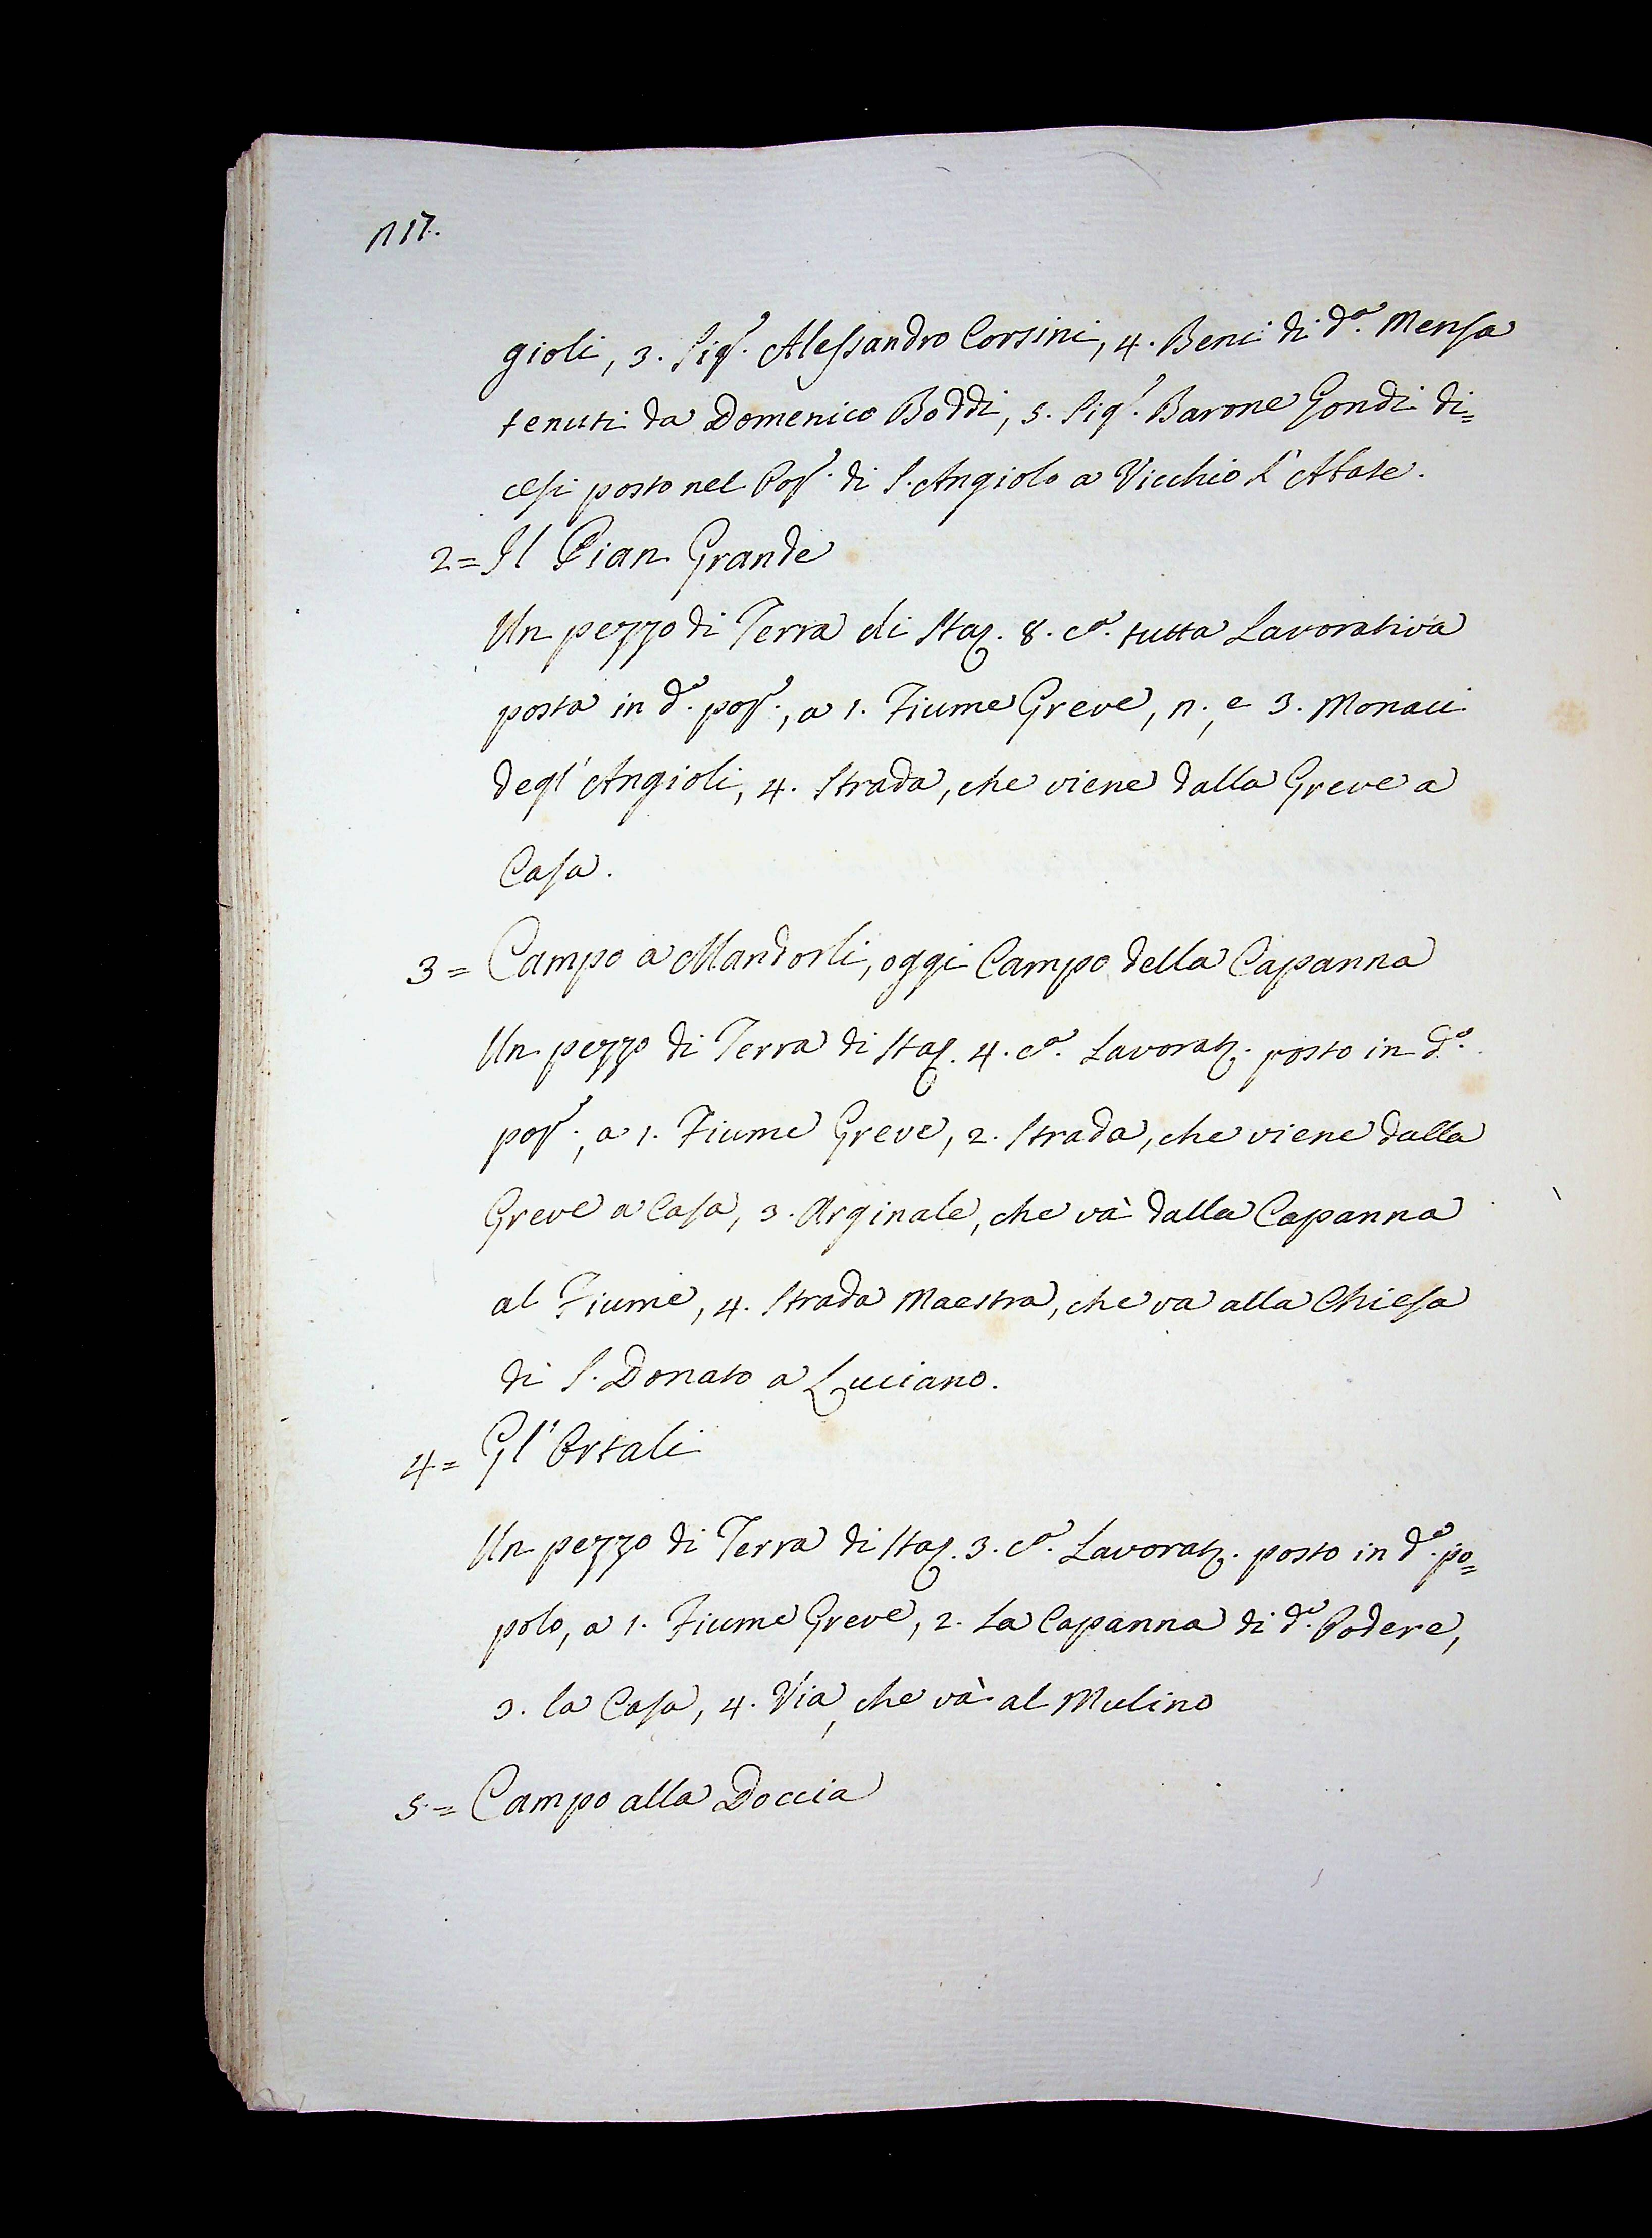 n 17.
gioli, 3. Sig.r Alessandro Corsini, 4. Beni di d.a Mensa
tenuti da Domenico Boddi, 5. Sig.r Barone Gondi di=
cesi posto nel Pop.o di S. Angiolo a Vicchio l'Abate.
2= Il Pian Grande
Un pezzo di Terra di Staj. 8. c.a tutta Lavorativa
posta in d.o pop.o, a 1. Fiume Greve, n., e 3. Monaci
degl'Angioli, 4. Strada, che viene dalla Greve a
Casa.
3= Campo a Mandorli, oggi Campo della Capanna
Un pezzo di Terra di Staj. 4. c.a Lavorat. posto in d.o
pop.o, a 1. Fiume Greve, 2. Strada, che viene dalla
Greve a Casa, 3. Arginale, che và dalla Capanna
al Fiume, 4. Strada Maestra, che va alla Chiesa
di S. Donato a Luciano.
4= Gl'Ortali
Un pezzo di Terra di Staj. 3. c.a Lavorat. posto in d.o po=
polo, a 1. Fiume Greve, 2. La Capanna di d.o Podere,
3. la Casa, 4. Via, che và al Mulino
5= Campo alla Doccia